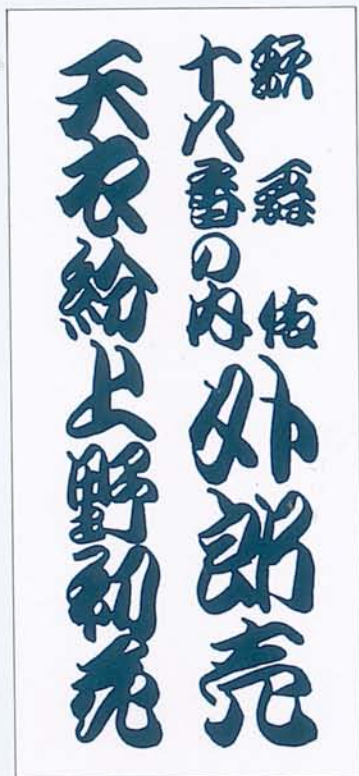 歌舞伎
十八番の内
外郎売
天衣紛上野初花